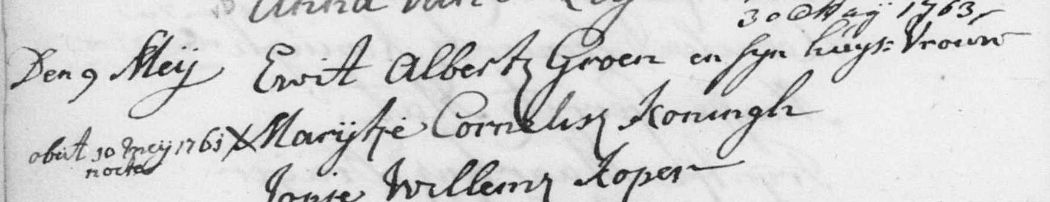 Anna van
30 Meij 1763
Den 9 Meij Ewit Albertz Groen en syn huys=Vrouw
obiit 10 meij 1761 X Marijtje Cornelisz Koningh
nocte
Willemz Koper